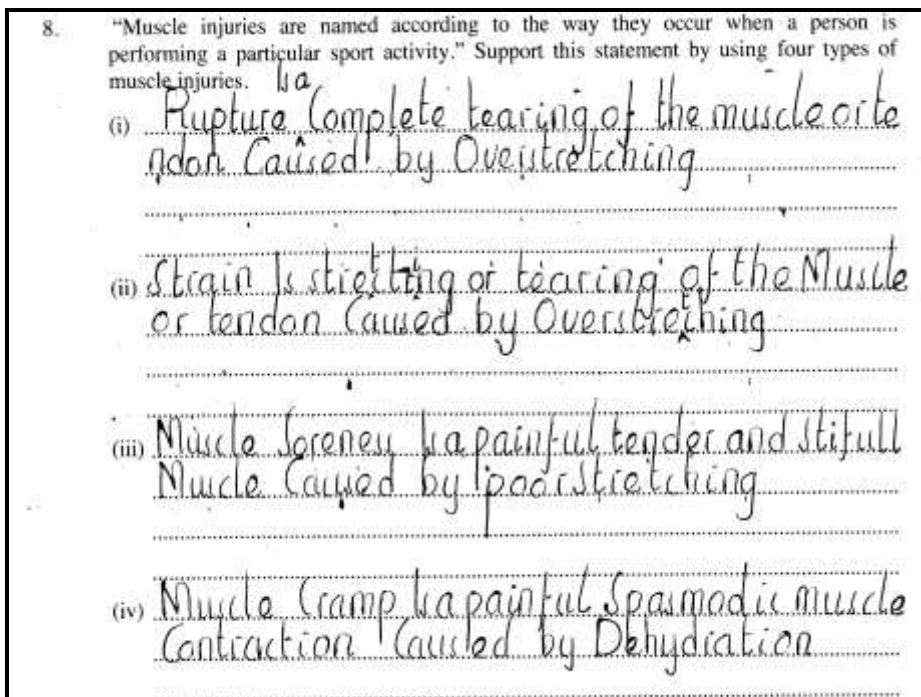 8. "Muscle injuries are named according to the way they occur when a person is
performing a particular sport activity." Support this statement by using four types of
muscle injuries.
Is a
(i) Rupture Complete tearing of the muscle or te
ndon Caused by Overstretching
(ii) Strain Is stretting or tearing of the Muscle
or tendon Caused by Overstrething
(iii) Muscle Soreness Is a painful tender and stifull
Muscle Caused by poor stretching
(iv) Muscle Cramp Is a painful Spasmodic muscle
Contraction Caused by Dehydration